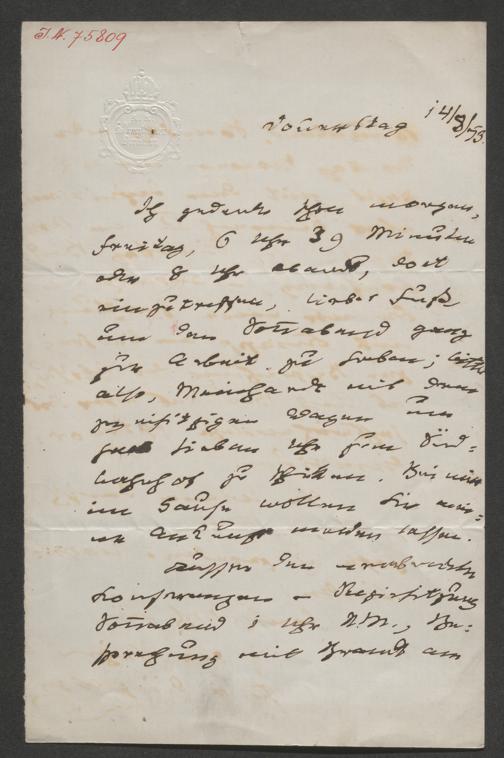 I.N. 75809
Donnerstag 14/8/93.
Ich gedenke schon morgen,
Freitag, 6 Uhr 39 Minuten
oder 8 Uhr abends, dort
einzutreffen, lieber Fuß
um den Sonnabend ganz
für Arbeit zu haben; bitte
also, Meinhardt mit dem
zweisitzigen Wagen um
halb sieben Uhr zum Süd-
bahnhof zu schicken. Bei mir
im Hause wollen Sie mei-
ne Ankunft melden lassen.
Außer den verabredeten
Konferenzen – Regiesitzung
Sonnabend 1 Uhr N.M., Be-
sprechung mit Brandt am